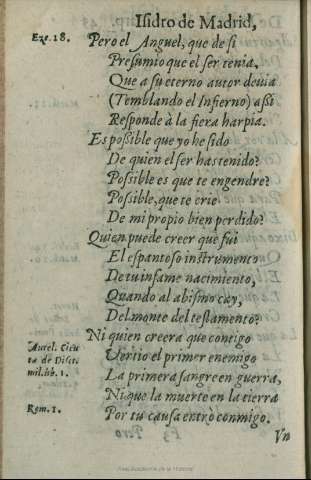 Isidro de Madrid,
Eze. 18.
Pero el Anguel, que de si
Presumio que el ser tenia,
Que a su eterno autor deuia
(Temblando el Infierno) aßi
Responde à la fiera harpia.
Es poßible que yo he sido
De quien el ser has tenido?
Poßible es que te engendre?
Poßible, que te crie
De mi propio bien perdido?
Quien puede creer que fui
El espantoso instrumento
De tu infame nacimiento,
Quando al abismo cay,
Del monte del testamento?
Ni quien creera que contigo
Aurel. Cicu
ta de Disci.
mil. lib. 1.
Vertio el primer enemigo
La primera sangre en guerra,
Ni que la muerte en la tierra
Rom. 1.
Por tu causa entrò conmigo.
Vn
Real Academia de la Historia